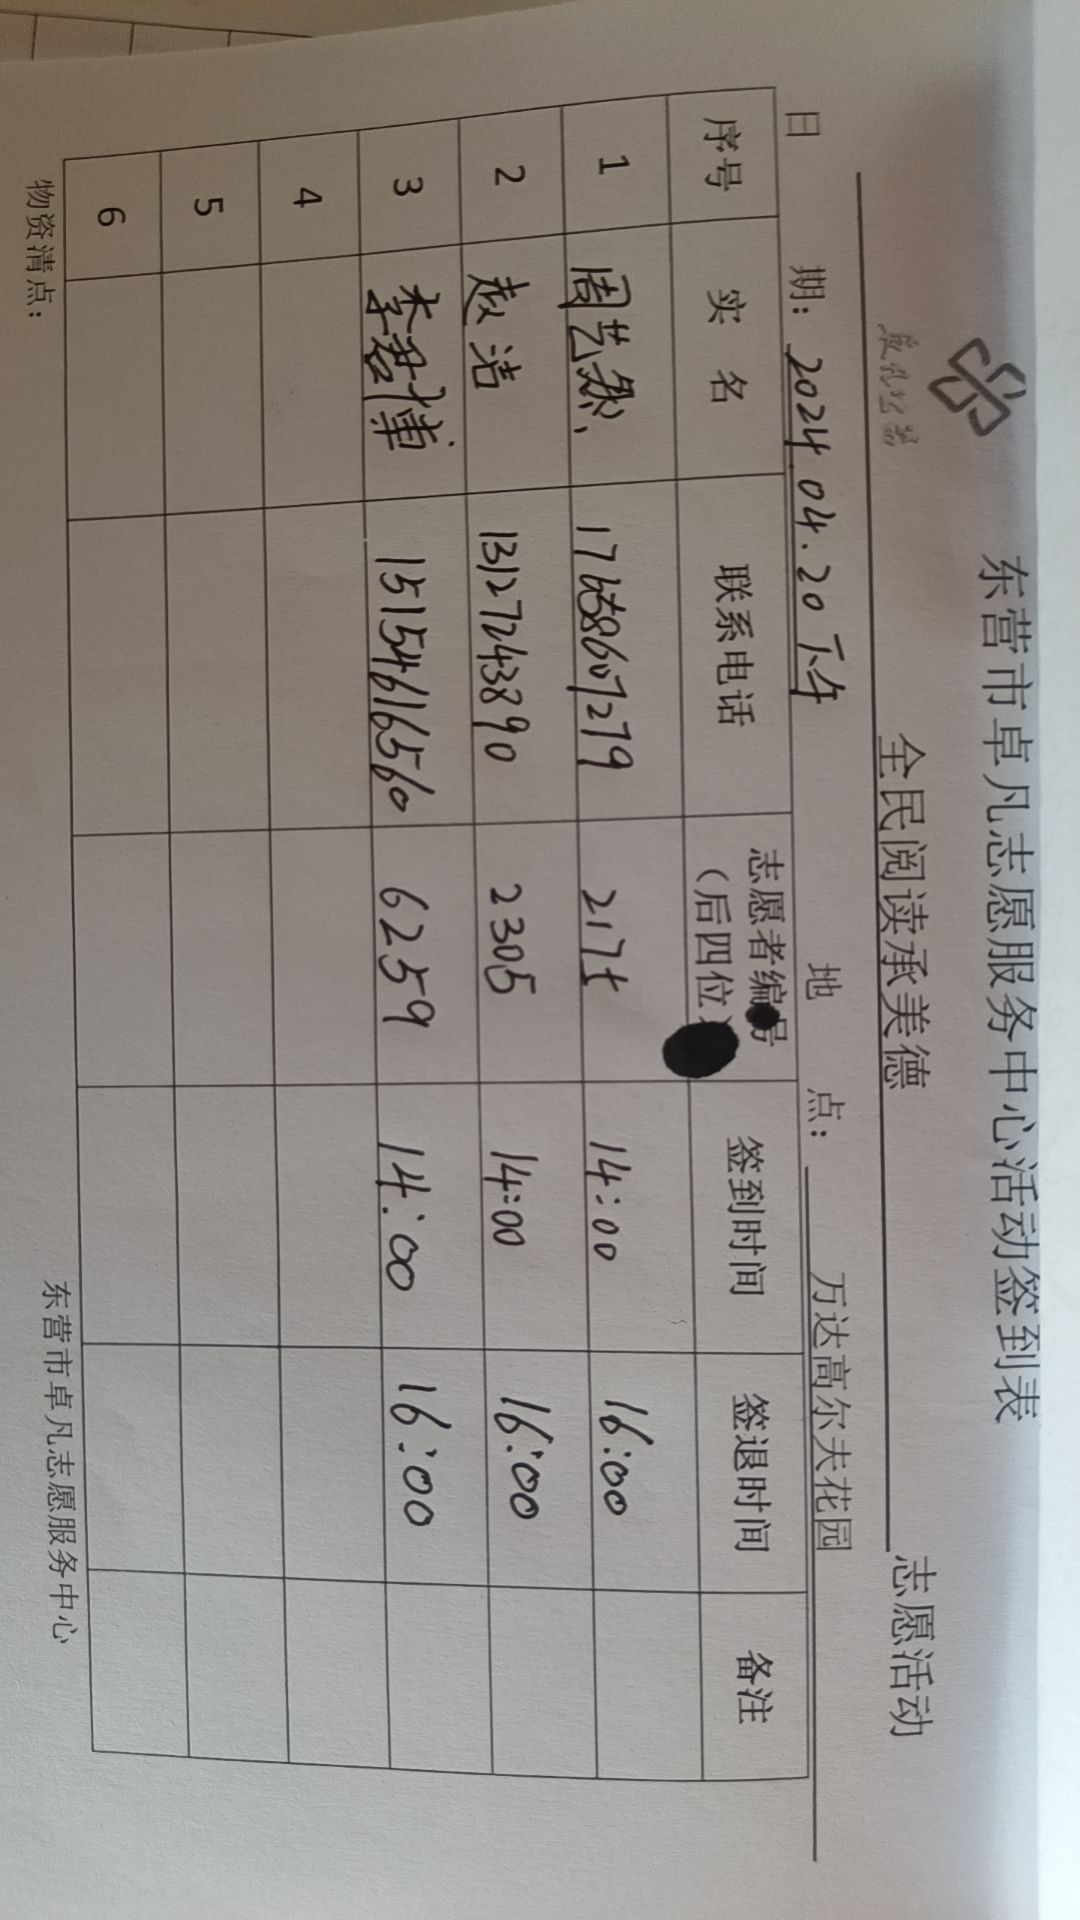 东营市卓凡志愿服务中心活动签到表
全民阅读承美德 志愿活动
日 期：2024.04.20 下午 地 点：万达高尔夫花园
序号 实 名 联系电话 志愿者编号（后四位） 签到时间 签退时间 备注
1 周艺然 2175 14:00 16:00
2 赵洁 13127243890 2305 14:00 16:00
3 李君博 15154616560 6259 14:00 16:00
4
5
6
物资清点： 东营市卓凡志愿服务中心